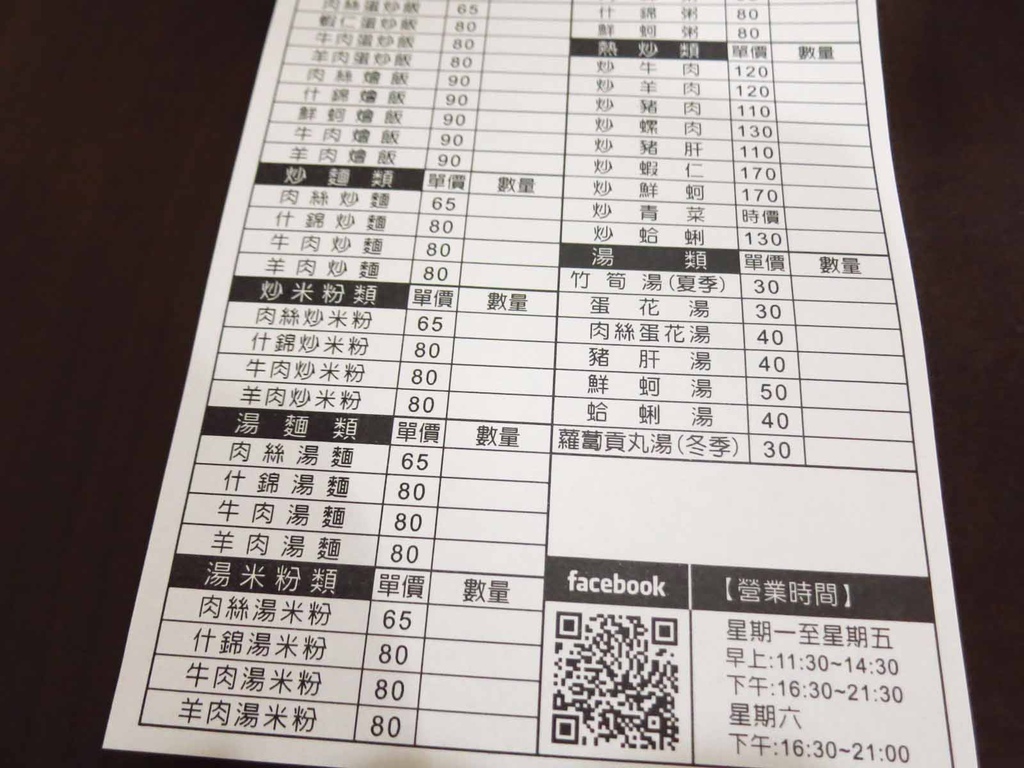 肉絲蛋炒飯 65
蝦仁蛋炒飯 80
牛肉蛋炒飯 80
羊肉蛋炒飯 80
肉絲燴飯 90
什錦燴飯 90
鮮蚵燴飯 90
牛肉燴飯 90
羊肉燴飯 90
炒麵類 單價 數量
肉絲炒麵 65
什錦炒麵 80
牛肉炒麵 80
羊肉炒麵 80
炒米粉類 單價 數量
肉絲炒米粉 65
什錦炒米粉 80
牛肉炒米粉 80
羊肉炒米粉 80
湯麵類 單價 數量
肉絲湯麵 65
什錦湯麵 80
牛肉湯麵 80
羊肉湯麵 80
湯米粉類 單價 數量
肉絲湯米粉 65
什錦湯米粉 80
牛肉湯米粉 80
羊肉湯米粉 80
什錦粥 80
鮮蚵粥 80
熱炒類 單價 數量
炒牛肉 120
炒羊肉 120
炒豬肉 110
炒螺肉 130
炒豬肝 110
炒蝦仁 170
炒鮮蚵 170
炒青菜 時價
炒蛤蜊 130
湯類 單價 數量
竹筍湯(夏季) 30
蛋花湯 30
肉絲蛋花湯 40
豬肝湯 40
鮮蚵湯 50
蛤蜊湯 40
蘿蔔貢丸湯(冬季) 30
facebook
【營業時間】
星期一至星期五
早上:11:30~14:30
下午:16:30~21:30
星期六
下午:16:30~21:00